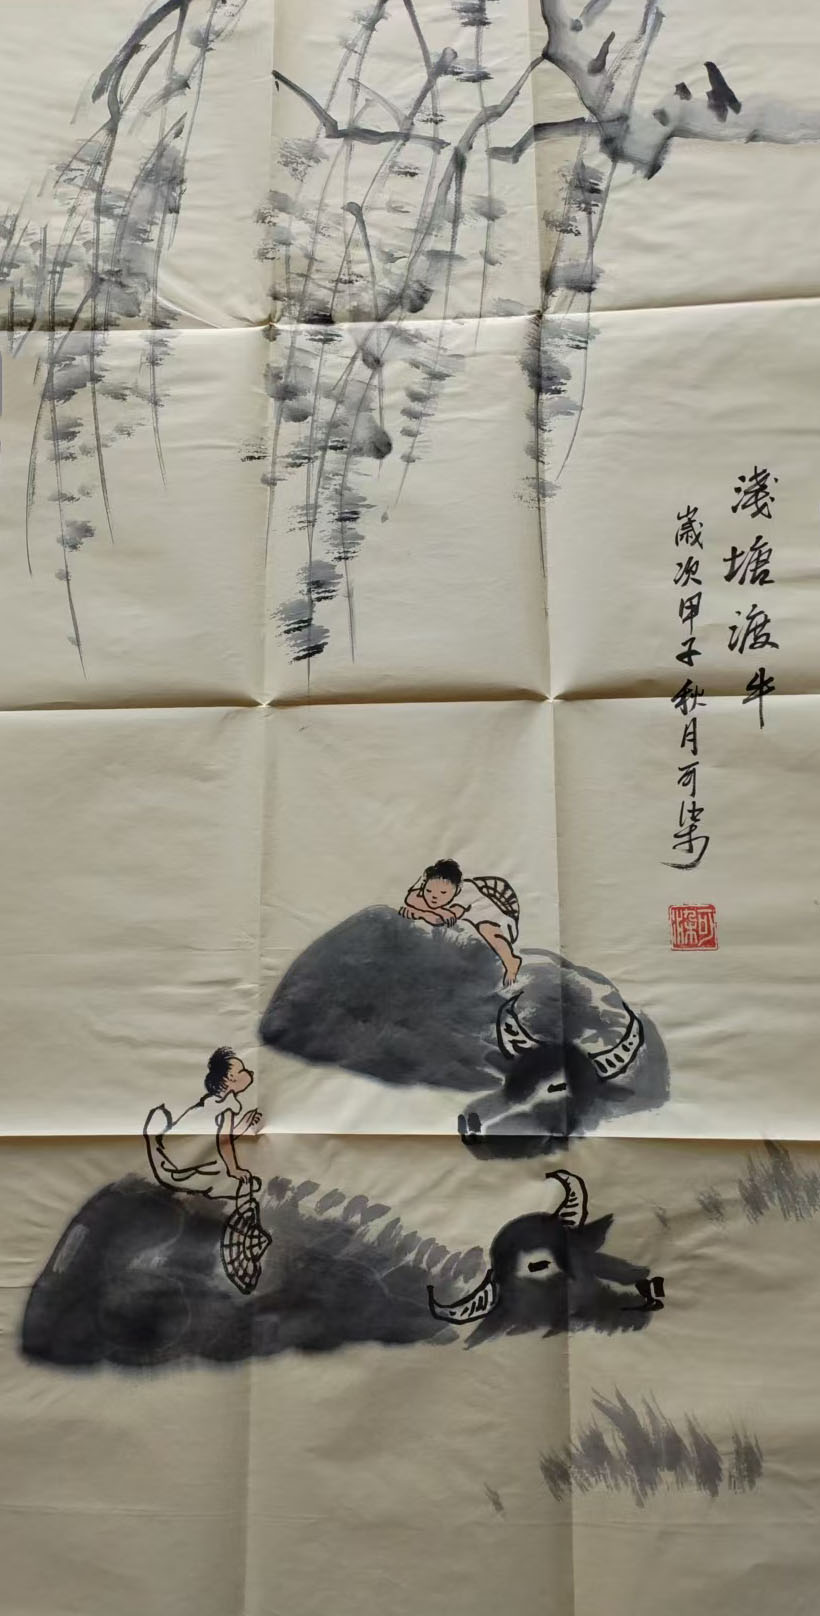 淺塘渡牛
歲次甲子秋月可染
可染